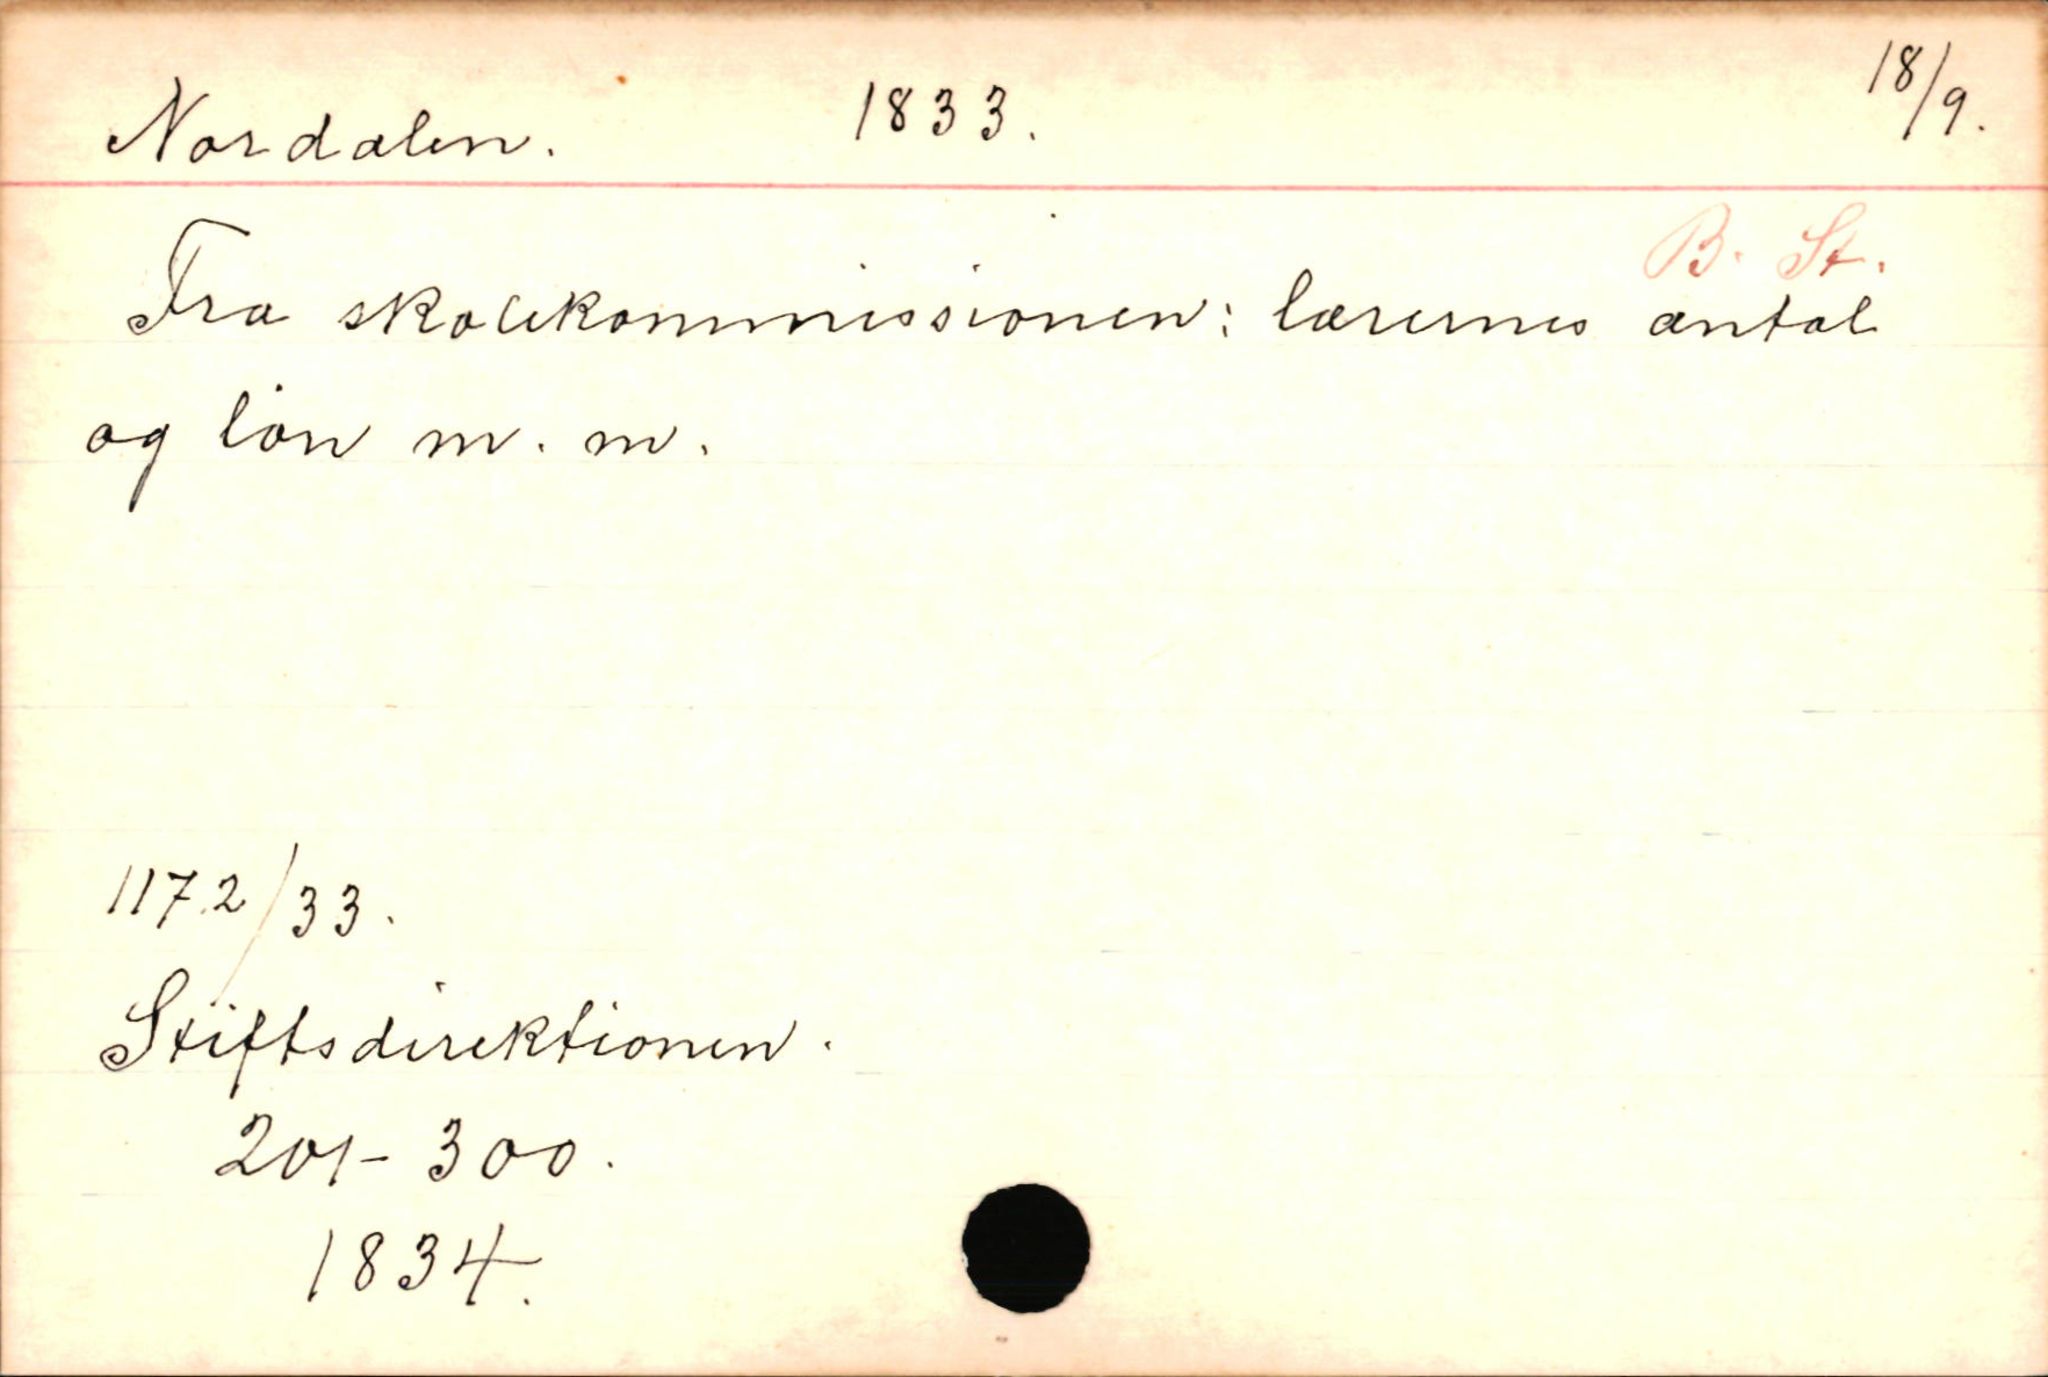 Nordalen. 1833. 18/9.
B. St.
Fra skolekommissionen: lærernes antal
og løn m. m.
1172/33.
Stiftsdirektionen.
201-300.
1834.